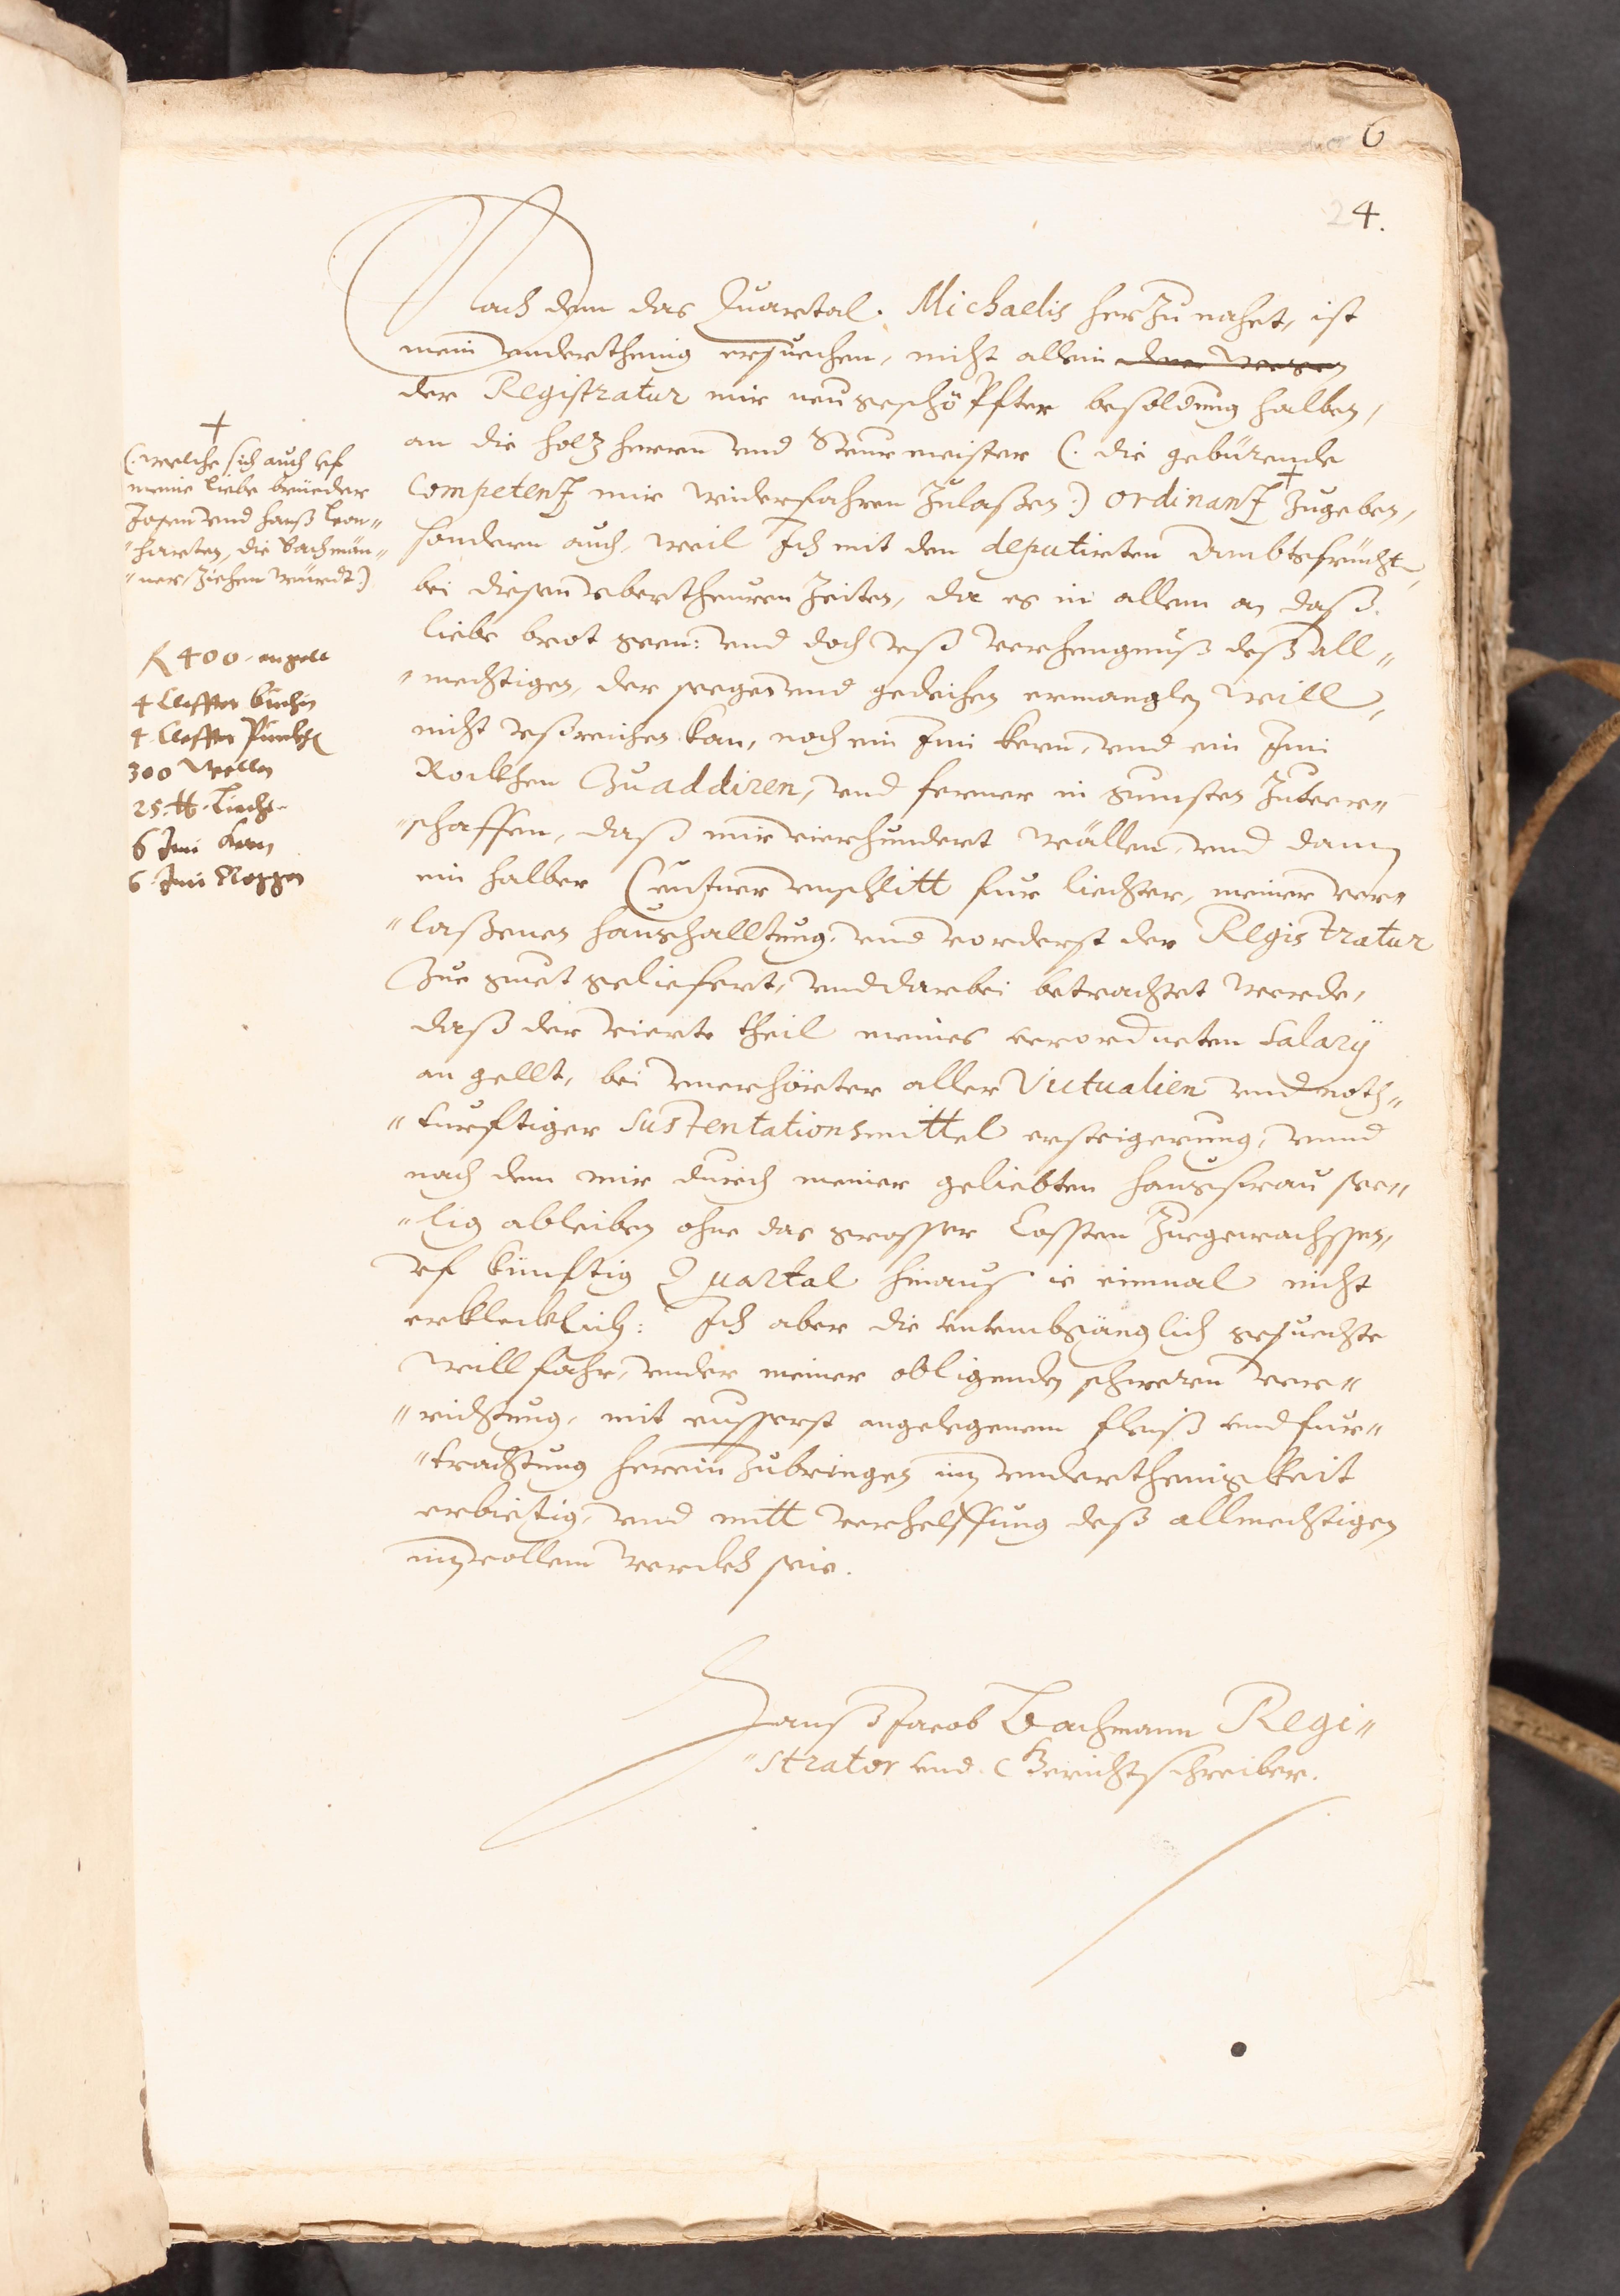 6
24.
Nach dem das Quartal Michaelis herzu nahet, ist
mein underthenig ersuechen, nicht allein
der Registratur mir neugeschöPffter besoldung halben,
an die holz herren und Steurmeister (. die gebürende
Competentz mir widerfahren Zulaßen.) ordinantz + Zugeben,
sondern auch, weil Ich mit den deputirten Ambtsfrücht
bei diesen uberTheuren Zeiten, da es in allem an daß
liebe brot geen: und doch uß verhengnuß deß all„
„mechtigen, der segen und gedeihen ermanglen will,
nicht ußreichen kan, noch ein Imi kern, und ein Imi
Rockhen Zu addiren, und ferner in gunsten Zuver„
„schaffen, daß mir vierhundert wällen, und dann
ein halber Centner unschlitt fur liechter, meiner ver„
„laßenen haushalltung, und vorderst der Registratur
Zue guet geliefert, und darbei betrachtet werde,
daß der vierte theil meines verordneten Salarij
an gellt, bei unerhörter aller Victualien und noth„
„turftiger Sustentationsmittel ersteigerung, unnd
nach dem mir durch meiner geliebten hausfrau see„
„lig ableiben ohne das grosser Cossten Zuegewachssen,
uf künftig Quartal hinaus ie einmal nicht
erklecklich: Ich aber die gesuechte
willfahr, under meiner obligenden schweren ver„
„richtung, mit eusserst angelegenem fleiß und fur„
„trachtung herein Zubringen inn underthenigkeit
erbietig, und mitt verhelffung deß allmechtigen
inn vollem werckh seie.
Hanß Jacob Bachmann Regi„
„strator und Gerichtschreiber.
+
(. welche sich auch uf
meine liebe brüeder
Josen und Hanß Leon„
„harten, die Bachmän„
„ner, Ziehen würdt.)
fl 400. an gelt
4 Claffter büechin
4. Claffter
300 Wellen
25. lb. Liecht
6 Imi Kern
6. Imi Roggen